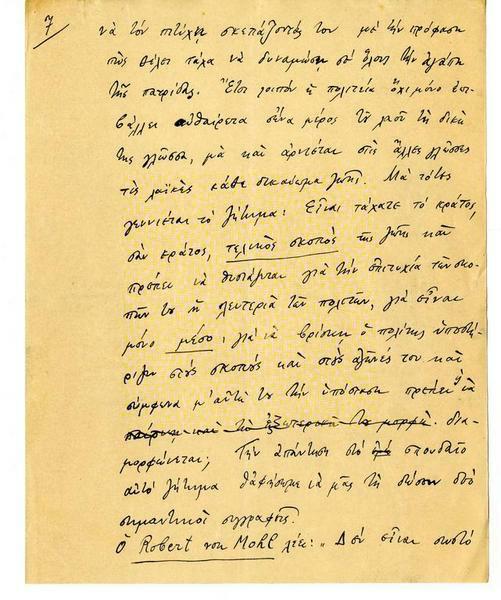 7
νὰ τὸν πιτύχει σκεπάζοντάς τον μὲ τὴν πρόφαση
πὼς θέλει τάχα νὰ δυναμώσῃ σὲ ὅλους τὴν ἀγάπη
τῆς πατρίδας. Ἔτσι λοιπὸν ἡ πολιτεία ὄχι μόνο ἐπι-
βάλλει αὐθαίρετα σ' ἕνα μέρος τοῦ λαοῦ τὴ δική
της γλῶσσα, μὰ καὶ ἀρνιέται στὶς ἄλλες γλῶσσες
τὶς λαϊκὲς κάθε δικαίωμα ζωῆς. Μὰ τότες
γεννιέται τὸ ζήτημα: Εἶναι τάχατε τὸ κράτος,
σὰν κράτος, τελικὸς σκοπὸς τῆς ζωῆς καὶ
πρέπει νὰ θυσιάζεται γιὰ τὴν ἐπιτυχία τῶν σκο-
πῶν του ἡ λευτεριὰ τῶν πολιτῶν, γιὰ εἶναι
μόνο μέσο, γιὰ νὰ βρίσκῃ ὁ πολίτης ὑποστή-
ριξη στοὺς σκοποὺς καὶ στοὺς ἀγῶνές του καὶ
σύμφωνα μ' αὐτὴ του τὴν ὑπόσταση πρέπει νὰ
καὶ τὴ ἐξωτερική του μορφή. δια-
μορφώνεται; Τὴν ἀπάντηση στὸ σπουδαῖο
αὐτὸ ζήτημα θ' ἀφήσωμε νὰ μᾶς τὴ δώσουν δυὸ
σημαντικοὶ συγγραφεῖς.
Ὁ Robert von Mohl λέει: „Δὲν εἶναι σωστὸ